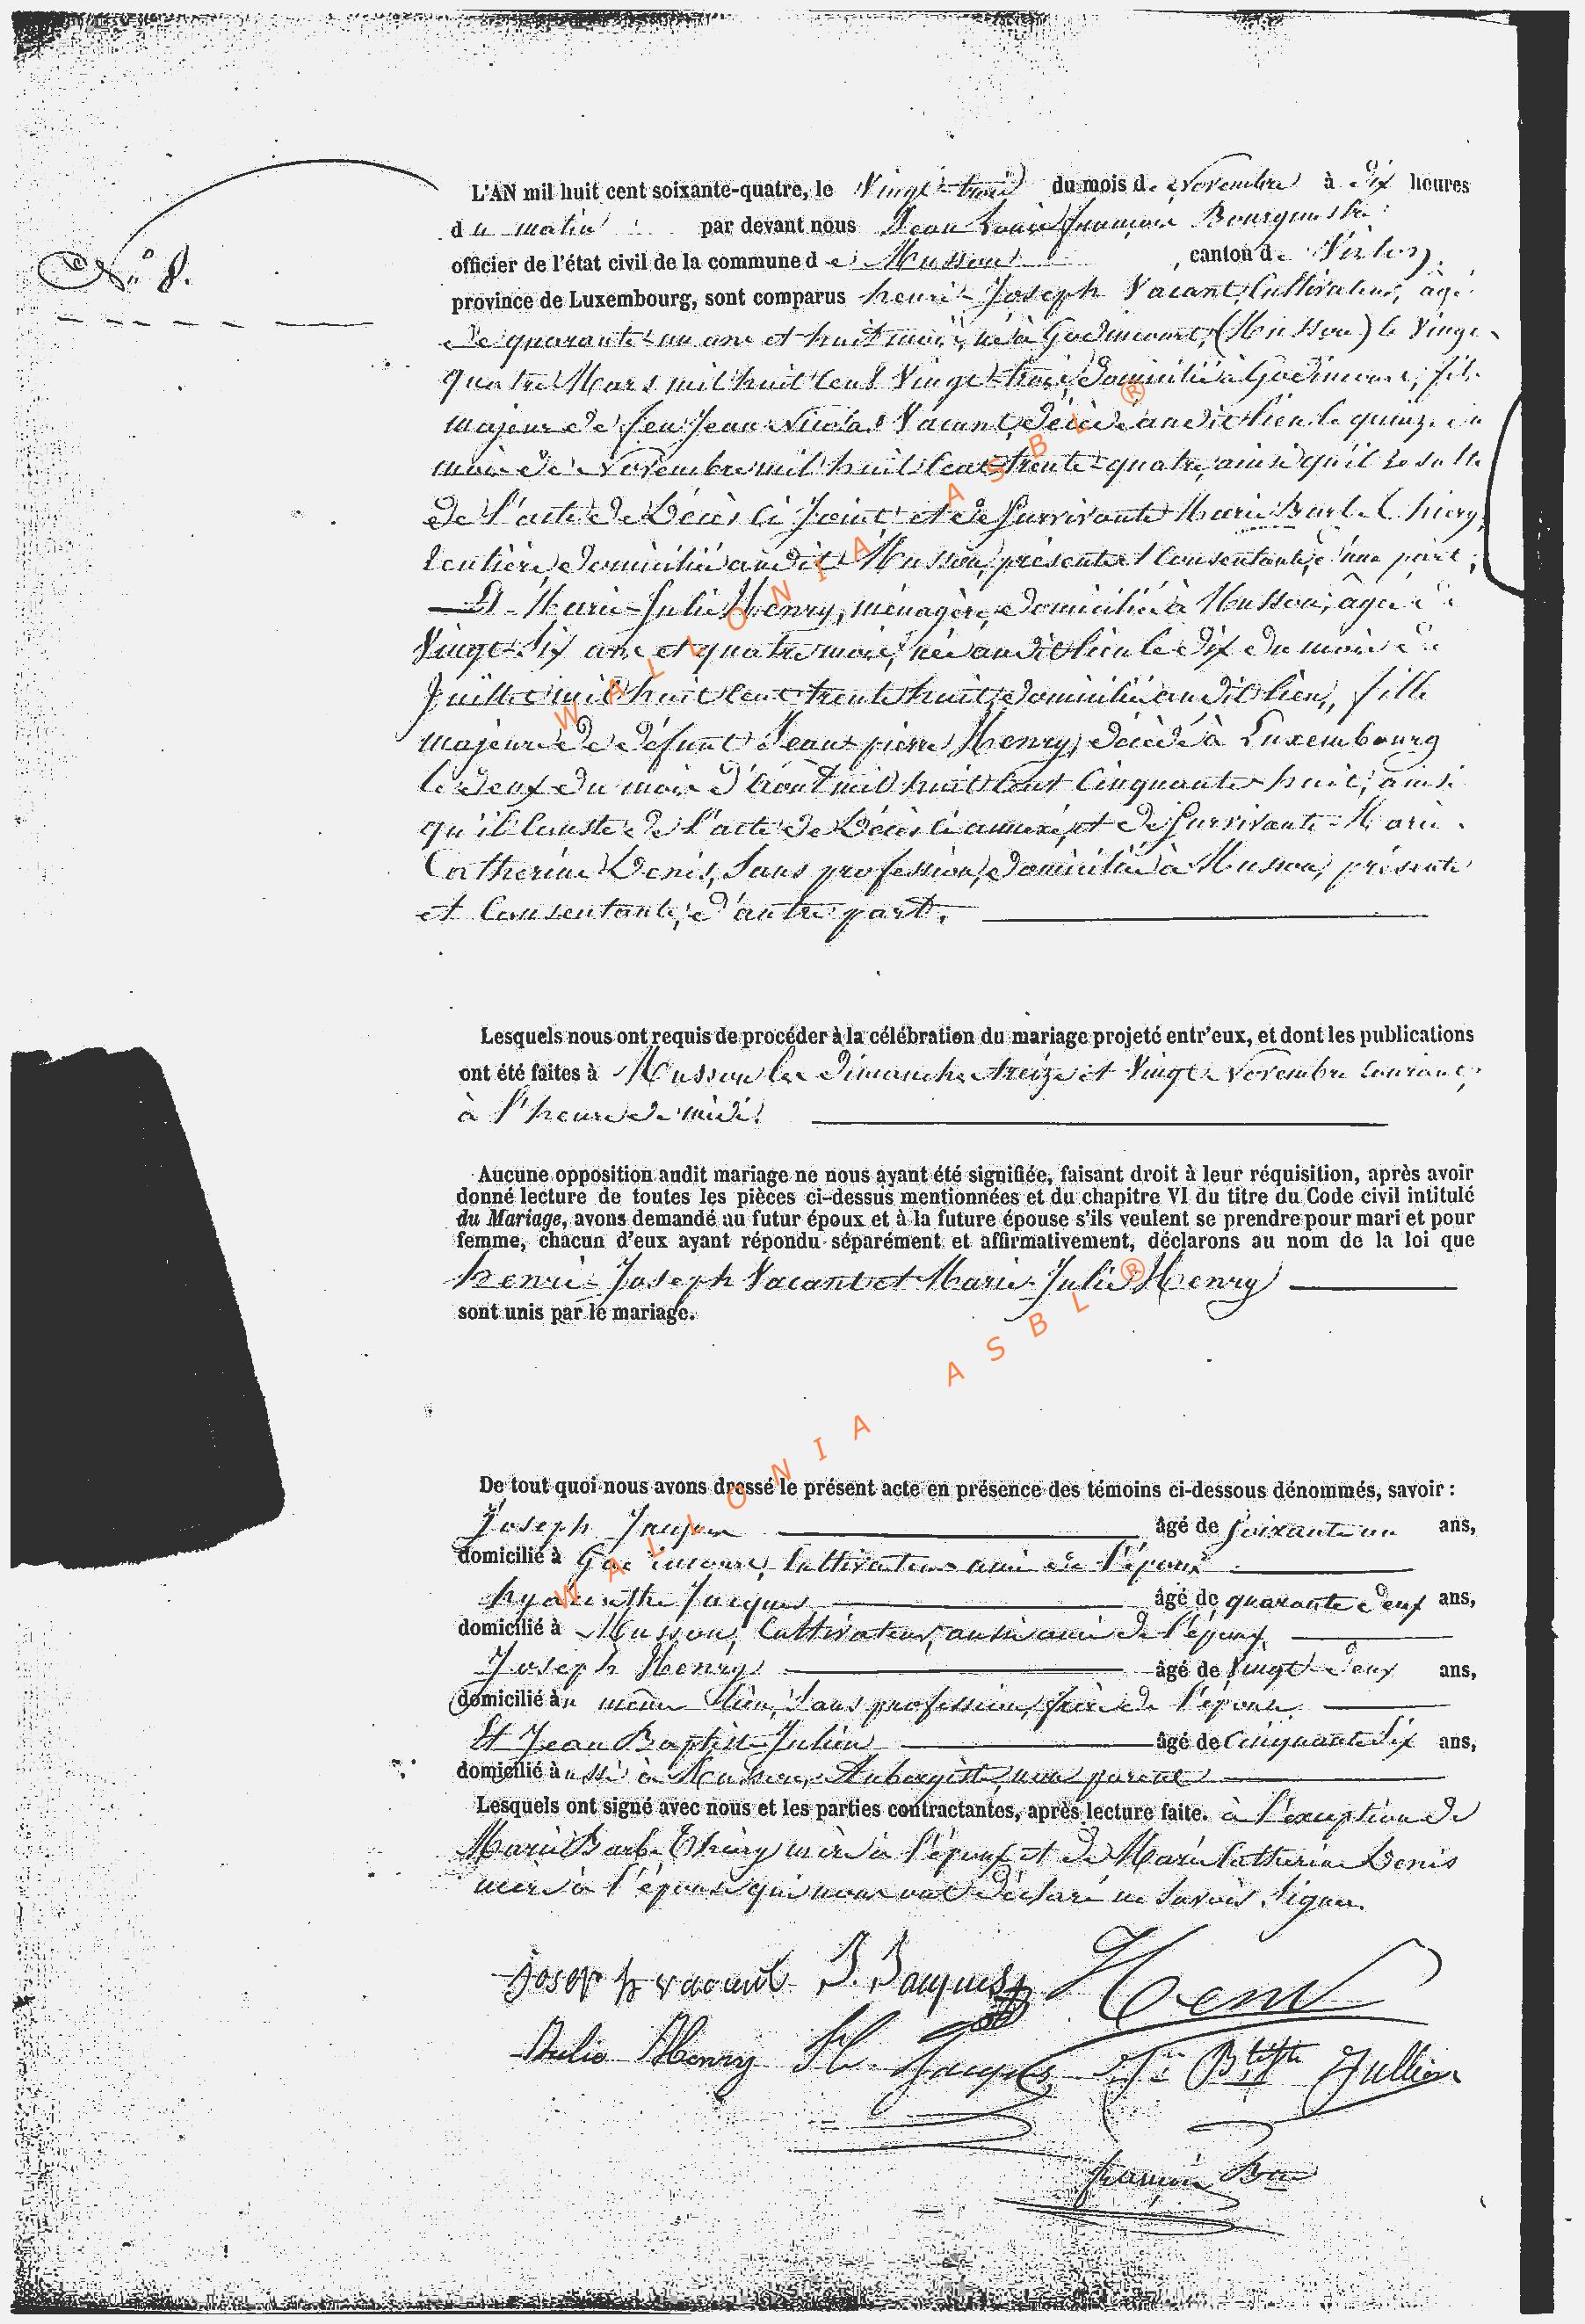 L'AN mil huit cent soixante-quatre, le Vingt-trois du mois de Novembre à Dix heures
du matin par devant nous Jean Louis françois Bourgmestre
officier de l'état civil de la commune de Musson, canton de Virton,
province de Luxembourg, sont comparus henri-Joseph Vacant, Cultivateur, âgé
N° 8.
de quarante-un ans et huit mois, né à Godincourt, (Musson) le Vingt-
quatre Mars mil huit Cent Vingt-trois, domicilié à Godincourt, fils
majeur de feu Jean Nicolas Vacant, décédé audit lieu le quinze du
mois de Novembre mil huit Cent trente-quatre, ainsi qu'il résulte
de l'acte de Décès Ci Joint et de Survivante Marie Barbe Thiery,
rentière domiciliée audit Musson, présente et Consentante, d'une part;
Et Marie-Julie Henry, ménagère, domiciliée à Musson, âgée de
Vingt-Six ans et quatre mois, née audit lieu le dix du mois de
Juillet mil huit Cent trente huit, domiciliée audit lieu, fille
majeure de défunt Jean-pierre Henry, décédé à Luxembourg
le deux du mois d'Août mil huit Cent Cinquante-huit, ainsi
qu'il Conste de l'acte de Décès ci annexé, et de Survivante-Marie-
Catherine Denis, Sans profession, domiciliée à Musson, présente
et Consentante, d'autre part.
Lesquels nous ont requis de procéder à la célébration du mariage projeté entr'eux, et dont les publications
ont été faites à Musson les Dimanches treize et Vingt Novembre Courant,
à l'heure de midi.
Aucune opposition audit mariage ne nous ayant été signifiée, faisant droit à leur réquisition, après avoir
donné lecture de toutes les pièces ci-dessus mentionnées et du chapitre VI du titre du Code civil intitulé
du Mariage, avons demandé au futur époux et à la future épouse s'ils veulent se prendre pour mari et pour
femme, chacun d'eux ayant répondu séparément et affirmativement, déclarons au nom de la loi que
henri-Joseph Vacant et Marie-Julie Henry
sont unis par le mariage.
De tout quoi nous avons dressé le présent acte en présence des témoins ci-dessous dénommés, savoir :
Joseph Jaques âgé de Soixante un ans,
domicilié à Godincourt, Cultivateur ami de l'époux
hyacinthe Jacques âgé de quarante deux ans,
domicilié à Musson, Cultivateur, aussi ami de l'époux,
Joseph Henry âgé de Vingt-deux ans,
domicilié au même lieu, Sans profession, frère de l'épouse
Et Jean Baptiste Julien âgé de Cinquante Six ans,
domicilié aussi à Musson, Aubergiste, non parent
Lesquels ont signé avec nous et les parties contractantes, après lecture faite. à l'exception de
Marie Barbe Thiery mère à l'époux et de Marie Catherine Denis
mère à l'épouse qui nous ont déclaré ne Savoir Signer.
Joseph vacant J. Jaques Henry
Julie Henry H. Jacques J. Btiste Jullien
françois Bre
WALLONIA ASBL ®
WALLONIA ASBL ®